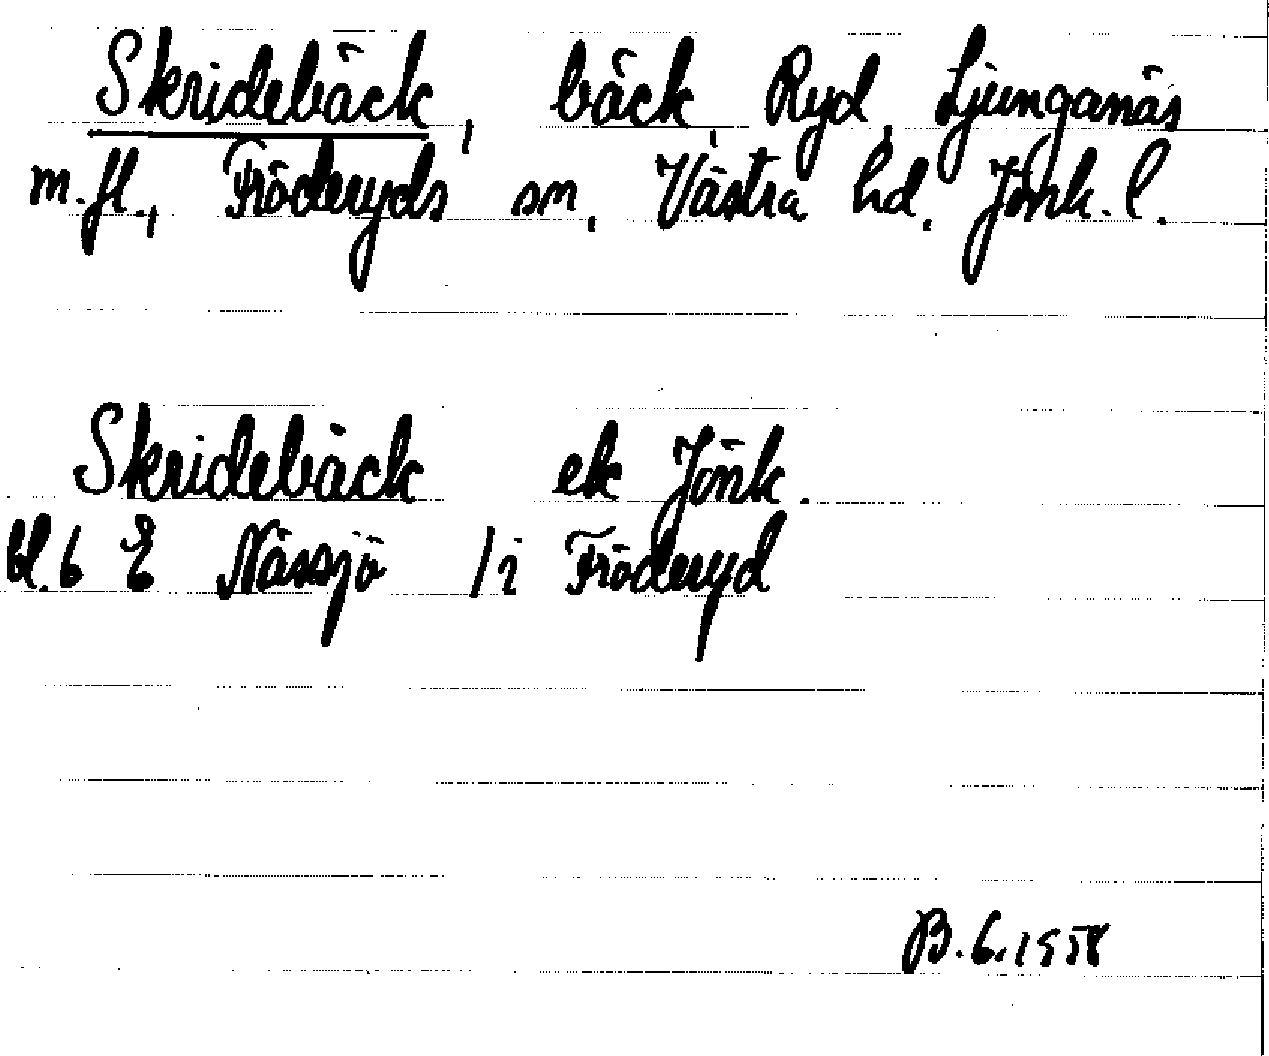 Skridebäck, bäck, Ryd, Ljunganäs
m.fl., Fröderyds sn. Västra hd. Jönk. l.
Skridebäck ek Jönk.
bl. 6 E Nässjö /i Fröderyd
B.G. 1958